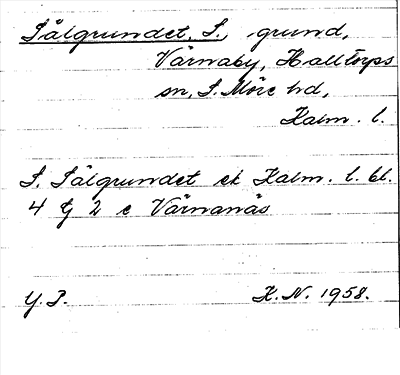 Sälgrundet, S., grund,
Värnaby, Halltorps
sn, S. Möre hd,
Kalm. l.
S. Sälgrundet ek Kalm. l. bl.
4 G 2 c Värnanäs
Y. P. K. N. 1958.